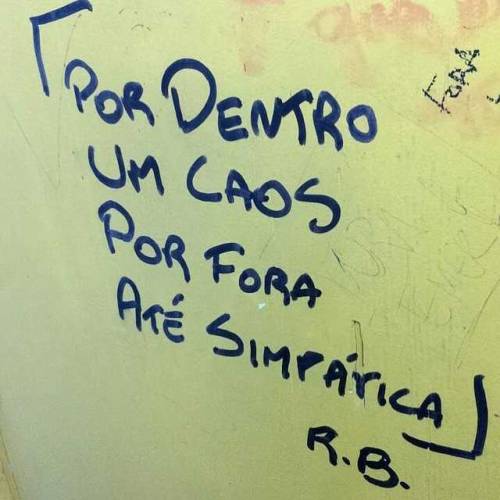 POR DENTRO
UM CAOS
POR FORA
ATÉ SIMPÁTICA
R.B.